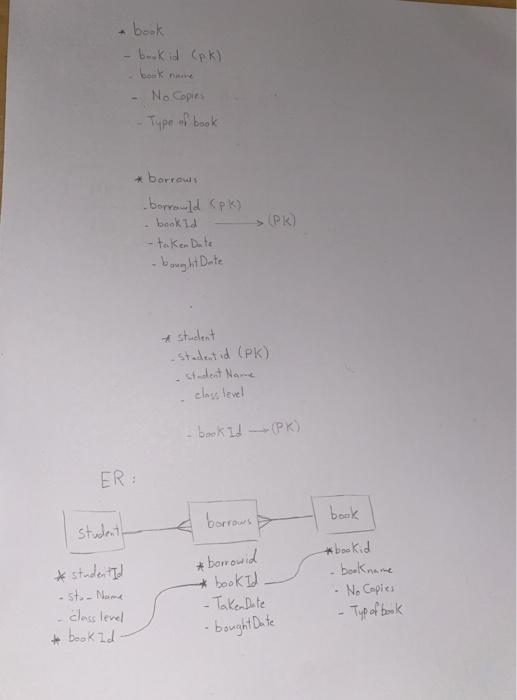 * book
- book id (PK)
- book name
- No.Copies
- Type of book
* borrows
- borrowId (PK)
- bookId → (PK)
- takenDate
- boughtDate
* student
- studentid (PK)
- student Name
- class level
- bookId → (PK)
ER :
student borrows book
* studentId * borrowid * bookid
- stu- Name * bookId - bookname
- class level - TakenDate - No Copies
* bookId - boughtDate - Typ of book